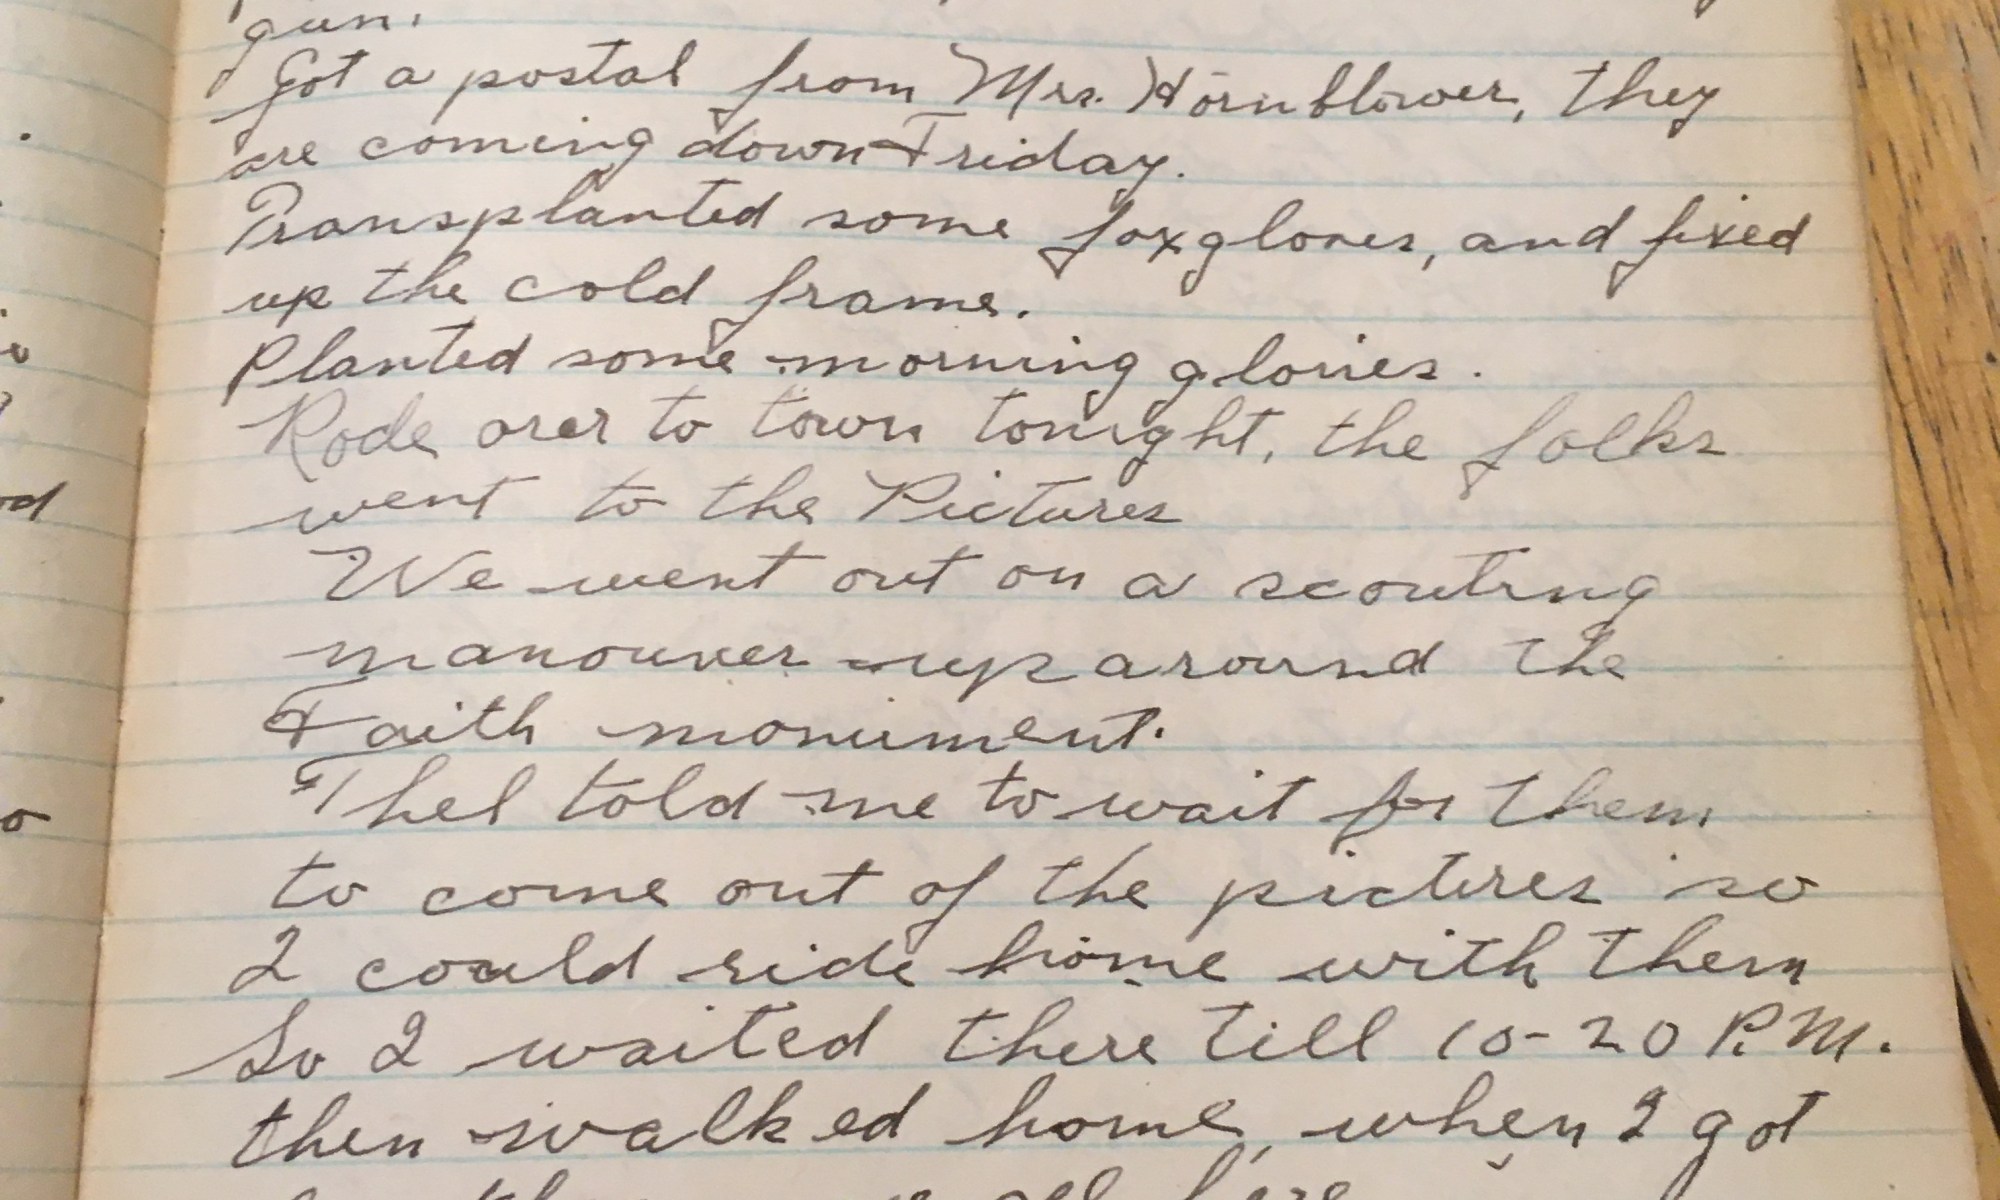 gun.
Got a postal from Mrs. Hornblower, they
are coming down Friday.
Transplanted some foxgloves, and fixed
up the cold frame.
Planted some morning glories.
Rode over to town tonight, the folks
went to the Pictures
We went out on a scouting
manouver up around the
Faith monument.
Thel told me to wait for them
to come out of the pictures so
I could ride home with them
So I waited there till 10-20 P.M.
then walked home, when I got